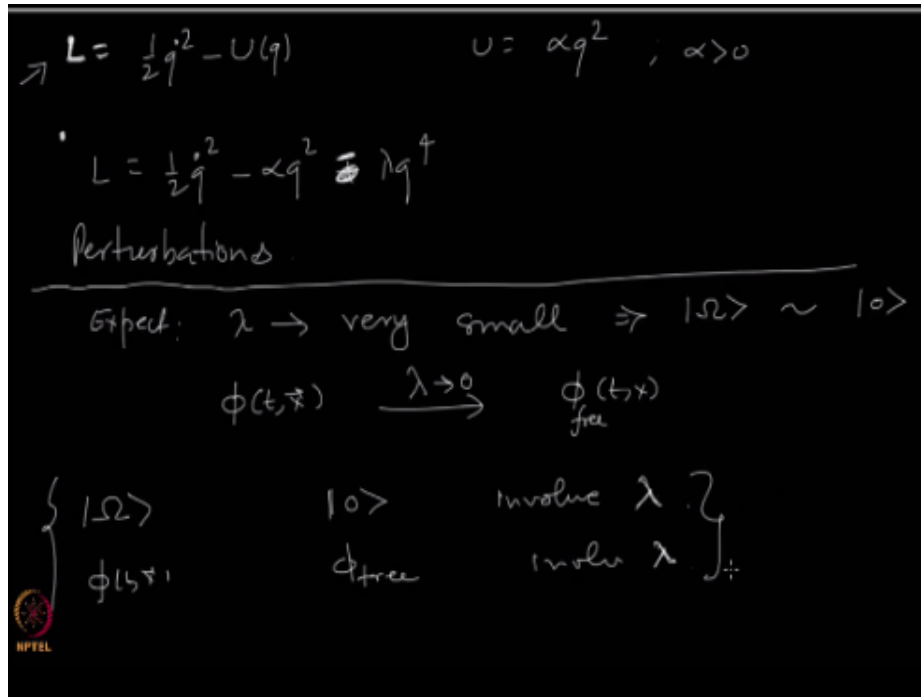 L = ½ q̇² − U(q) U = αq² ; α>0
L = ½ q̇² − αq² − λq⁴
Perturbations.
Expect: λ → very small ⇒ |Ω> ~ |0>
ϕ(t,x⃗) λ→0 ⟶ ϕ free (t,x)
{ |Ω> |0> involve λ }
ϕ( ϕfree involv λ
NPTEL